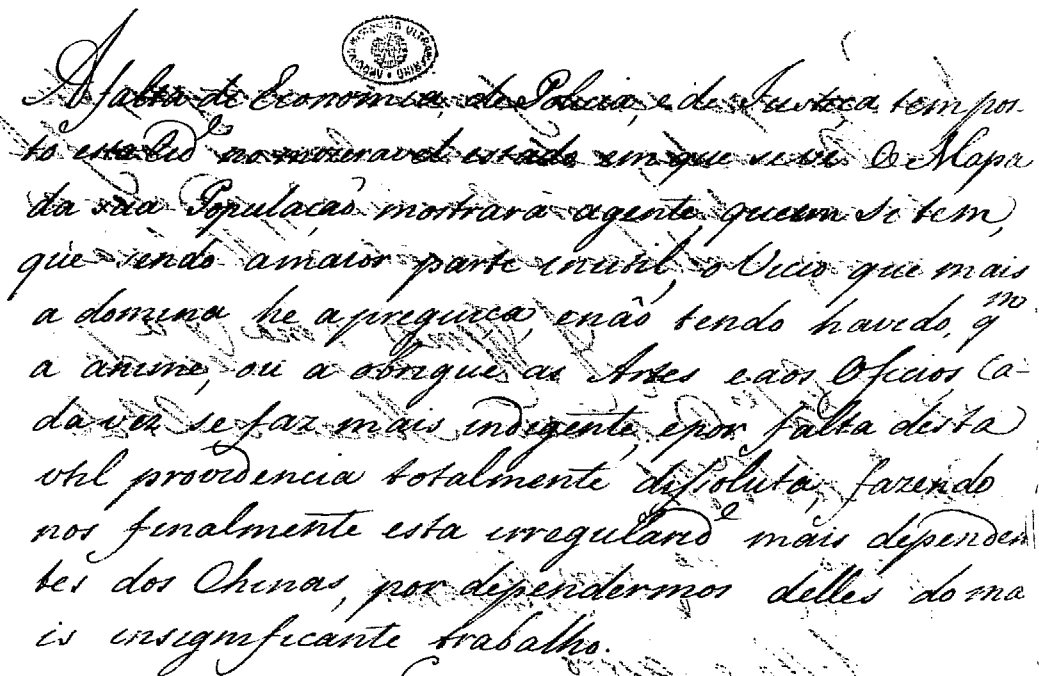 A falta de Economia, de Policia, e de Justiça tem pos-
to esta Cid.e no mizeravel estado em que se vê. O Mapa
da sua População mostrará agente, que em si tem,
que sendo amaior parte inutil, o Vicio que mais
a domina he apreguiça, enão tendo havido, q.m
a anime, ou a obrigue as Artes eaos Oficios Ca-
da vez se faz mais indigente, epor falta desta
util providencia totalmente dissoluta, fazendo
nos finalmente esta irregularid.e mais dependen
tes dos Chinas, por dependermos delles do ma
is insignificante trabalho.